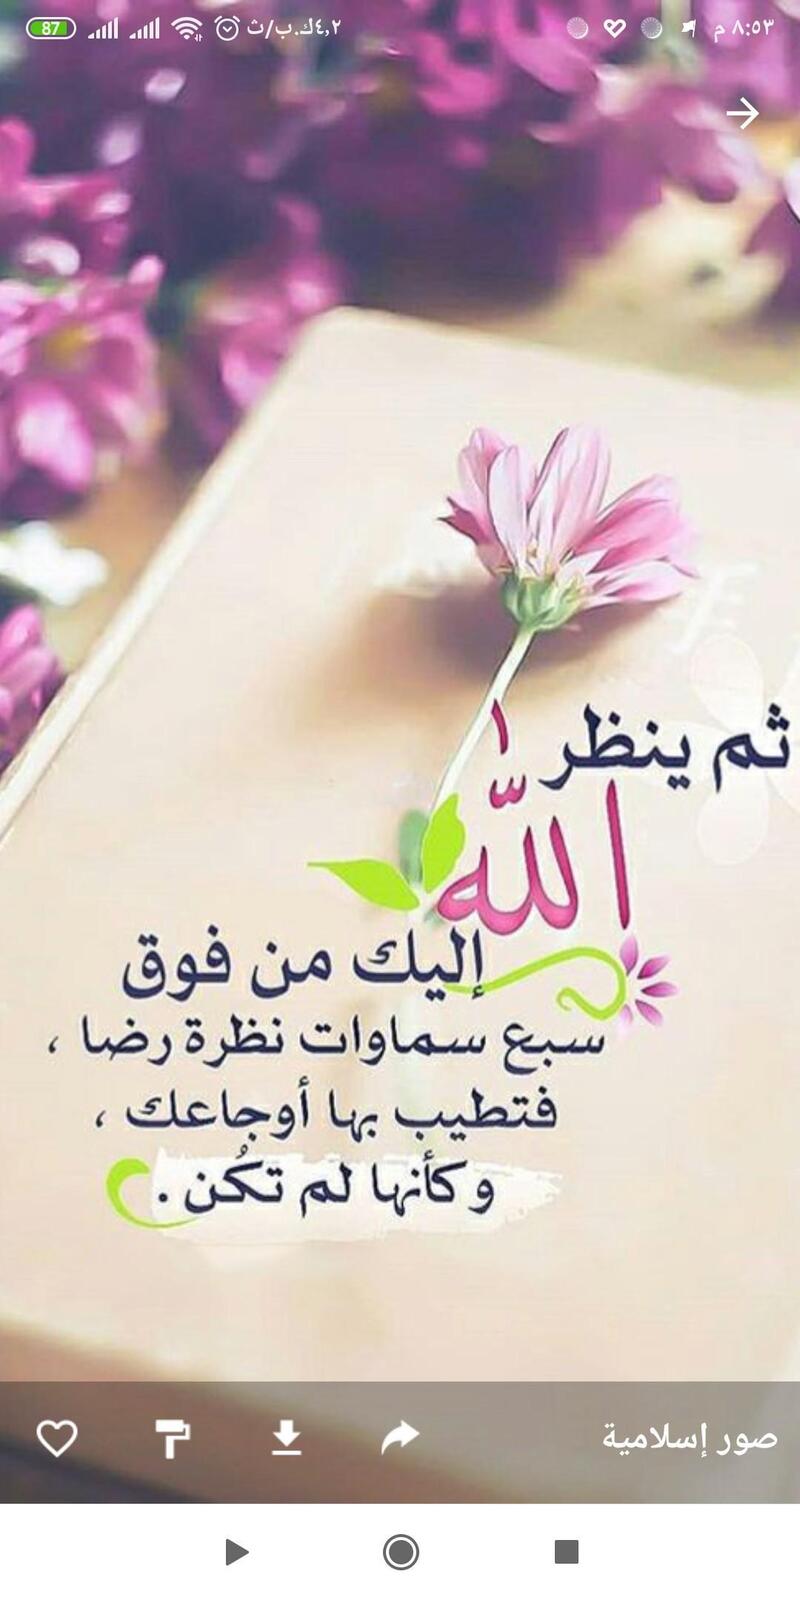 ٨:٥٣ م
٤,٢ك.ب/ث
87
ثم ينظر
الله
إليك من فوق
سبع سماوات نظرة رضا ،
فتطيب بها أوجاعك ،
وكأنها لم تكُن .
صور إسلامية